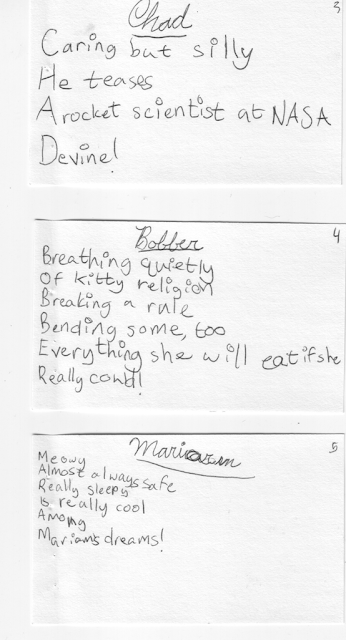 3
Chad
Caring but silly
He teases
A rocket scientist at NASA
Devine!
4
Bobber
Breathing quietly
Of kitty religion
Breaking a rule
Bending some, too
Everything she will eat if she
Really could!
5
Mariam
Meowy
Almost always safe
Really sleepy
Is really cool
Among
Mariam's dreams!